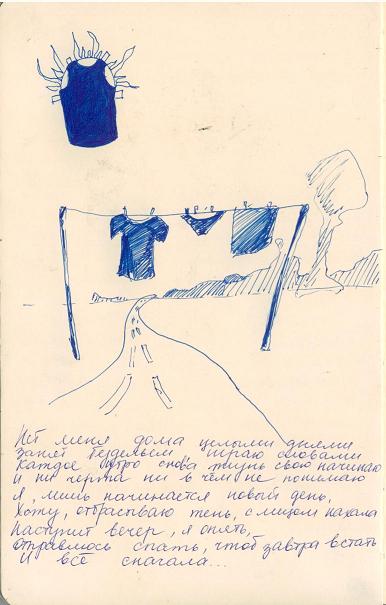 Нет меня дома целыми днями
занят бездельем, играю словами
Каждое утро снова жизнь свою начинаю
И ни черта ни в чём не понимаю
Я, лишь начинается новый день,
Хожу, отбрасываю тень, с лицом нахала
Наступит вечер, я опять,
отправлюсь спать, чтоб завтра встать
И всё сначала...